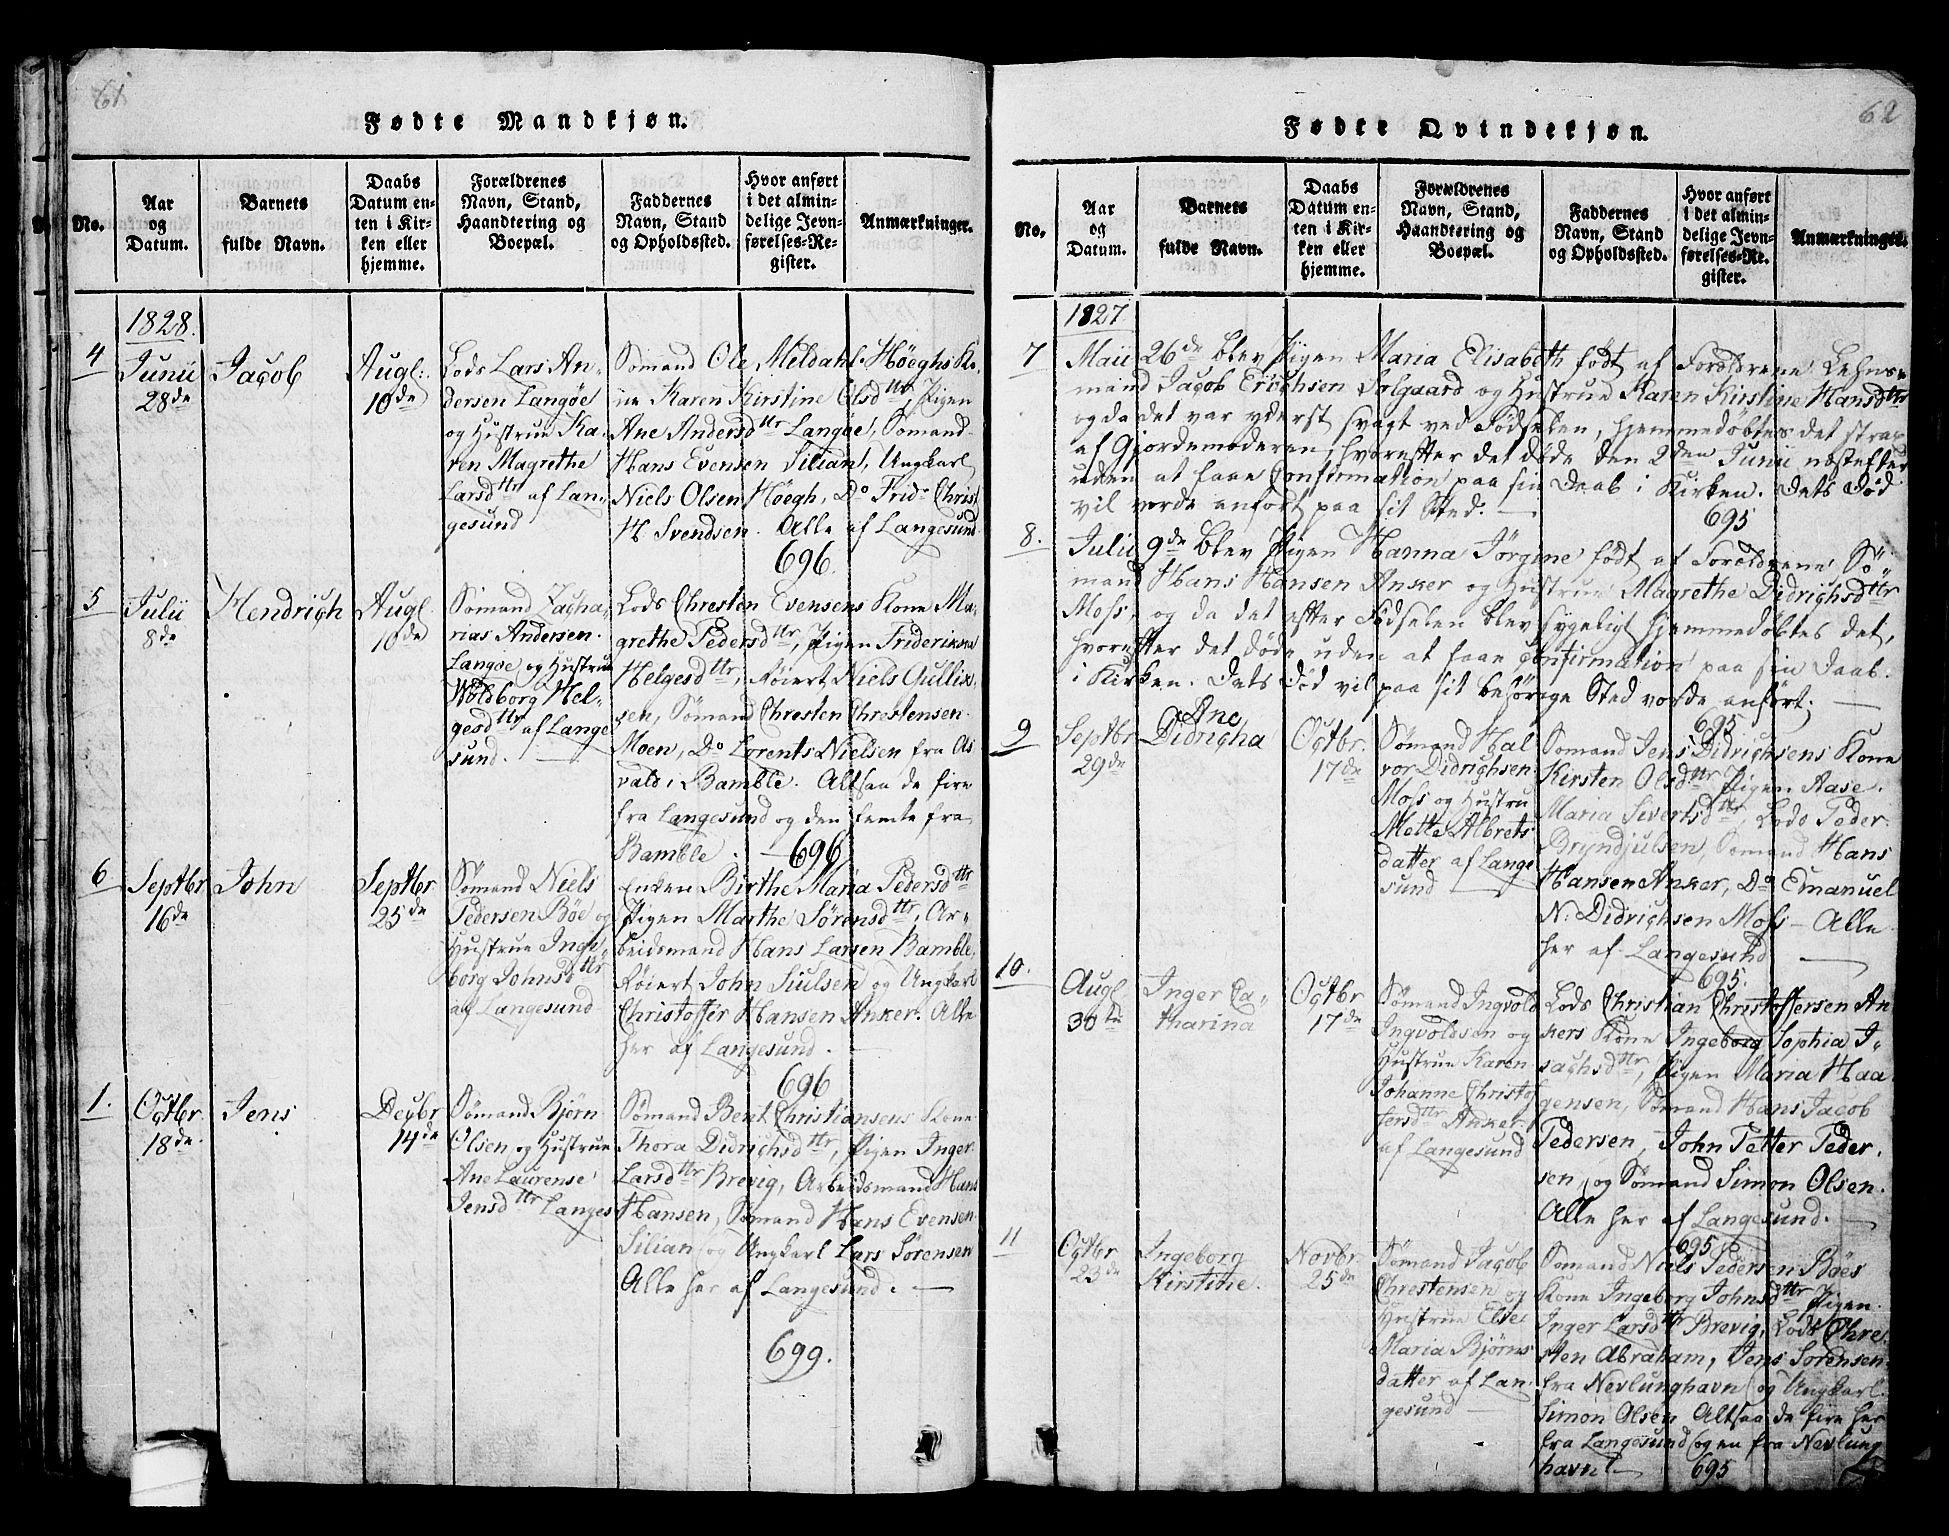 61
Fødte Mandkjøn.
No.
Aar
og
Datum.
Barnets
fulde Navn.
Daabs
Datum en-
ten i Kir-
ken eller
hjemme.
Forældrenes
Navn, Stand,
Haandtering og
Boepæl.
Faddernes
Navn, Stand
og Opholdssted.
Hvor anført
i det almin-
delige Jevn-
førelses-Re-
gister.
Anmærkninger.
1828.
4
Junii
28de
Jacob
Augl:
10de
Lods Lars An-
dersen Langøe
og Hustrue Ka-
ren Magrethe
Larsdttr af Lan-
gesund
Sømand Ole Meldahl Høeghs Ko-
ne Karen Kirstine Olsdttr, Pigen
Ane Andersdttr Langøe, Sømand
Hans Evensen Silian, Ungkarl
Niels Olsen Høegh, Do Fridr Christ
H. Svendsen. Alle af Langesund
696.
5
Julii
8de
Hendrich
Augl
10de
Sømand Zacha-
rias Andersen
Langøe og Hustrue
Woldborg Hel-
gesdttr af Lange
sund.
Lods Chresten Evensens Kone Ma-
grethe Pedersdttr, Pigen Friderikka
Helgesdttr, Røiert Niels Gullik-
sen, Sømand Chresten Chrestensen
Moen, Do Lorents Nielsen fra As
vald i Bamble. Altsaa de fire
fra Langesund og den femte fra
Bamble. 696
6
Septbr
16de
John
Septbr
25de
Sømand Niels
Pedersen Bøe og
Hustrue Inge-
borg Johnsdttr
af Langesund
Enken Birthe Maria Pedersdttr
Pigen Marthe Sørensdttr, Ar-
beidsmand Hans Larsen Bamble,
Røiert John Siulsen og Ungkarl
Christoffer Hansen Anker. Alle
her af Langesund.
696
1.
Octbr.
18de.
Jens
Decbr
14de
Sømand Bjørn
Olsen og Hustrue
Ane Laurense
Jensdttr Langes
Sømand Bent Christiansens Kone
Thora Didrichsdttr, Pigen Inger
Larsdttr Brevig, Arbeidsmand Hans
Hansen, Sømand Hans Evensen
Silian og Ungkarl Lars Sørensen
Alle her af Langesund.
699.
62
Fødte Qvindekjøn.
No.
Aar
og
Datum.
Barnets
fulde Navn.
Daabs
Datum en-
ten i Kir-
ken eller
hjemme.
Forældrenes
Navn, Stand,
Haandtering og
Boepæl.
Faddernes
Navn, Stand
og Opholdssted.
Hvor anført
i det almin-
delige Jevn-
førelses-Re-
gister.
Anmærkninger.
1827.
7
Maii 26de blev Pigen Maria Elisabeth født af Forældrene Lehns-
mand Jacob Erichsen Solgaard og Hustrue Karen Kirstine Hansdttr
og da det var yderst svagt ved Fødselen, hjemmedøbtes det strax
af Gjordemoderen, hvorefter det døde den 2den Junii næstefter
uden at faae Confirmation paa sin Daab i Kirken. Dets Død
vil vorde anført paa sit Sted. 695
8.
Julii 9de blev Pigen Hanna Jørgine født af Forældrene Sø-
mand Hans Hansen Anker og Hustrue Magrethe Didrichsdttr
Moss, og da det efter Fødselen blev sygeligt hjemmedøbtes det,
hvorefter det døde uden at faae Confirmation paa sin Daab
i Kirken. Dets Død vil paa sit behørige Sted vorde anført.
695
9
Septbr
29de
Ane
Didricha
Octbr.
17de
Sømand Hal
vor Didrichsen
Moss og Hustru
Mette Albrets
datter af Lange
sund
Sømand Jens Didrichsens Kone
Kirsten Olsdttr Pigen Aase
Maria Sivertsdttr, Lods Peder
Bryndjulsen, Sømand Hans
Hansen Anker, Do Emanuel
N. Didrichsen Moss - Alle
her af Langesund
695.
10.
Augl.
30te
Inger Ca-
tharina
Octbr
17de
Sømand Ingvold
Ingvoldsen og
Hustrue Karen
Johanne Christof
fersdttr Anker
af Langesund
Lods Christian Christoffersen An
kers Kone Ingeborg Sophia I-
sachsdttr, Pigen Maria Haa
gensen, Sømand Hans Jacob
Pedersen, John Petter Peder
sen, og Sømand Simon Olsen.
Alle her af Langesund.
695
11
Octbr
23de
Ingeborg
Kirstine.
Novbr.
25de
Sømand Jacob
Chrestensen og
Hustrue Else
Maria Bjørns
datter af Lan-
gesund
Sømand Niels Pedersen Bøes
Kone Ingeborg Johnsdttr Pigen
Inger Larsdttr Brevig, Lods Chre
sten Abraham, Jens Sørensen
fra Nevlunghavn og Ungkarl
Simon Olsen Altsaa de fire her
fra Langesund og en fra Nevlung
havn 695